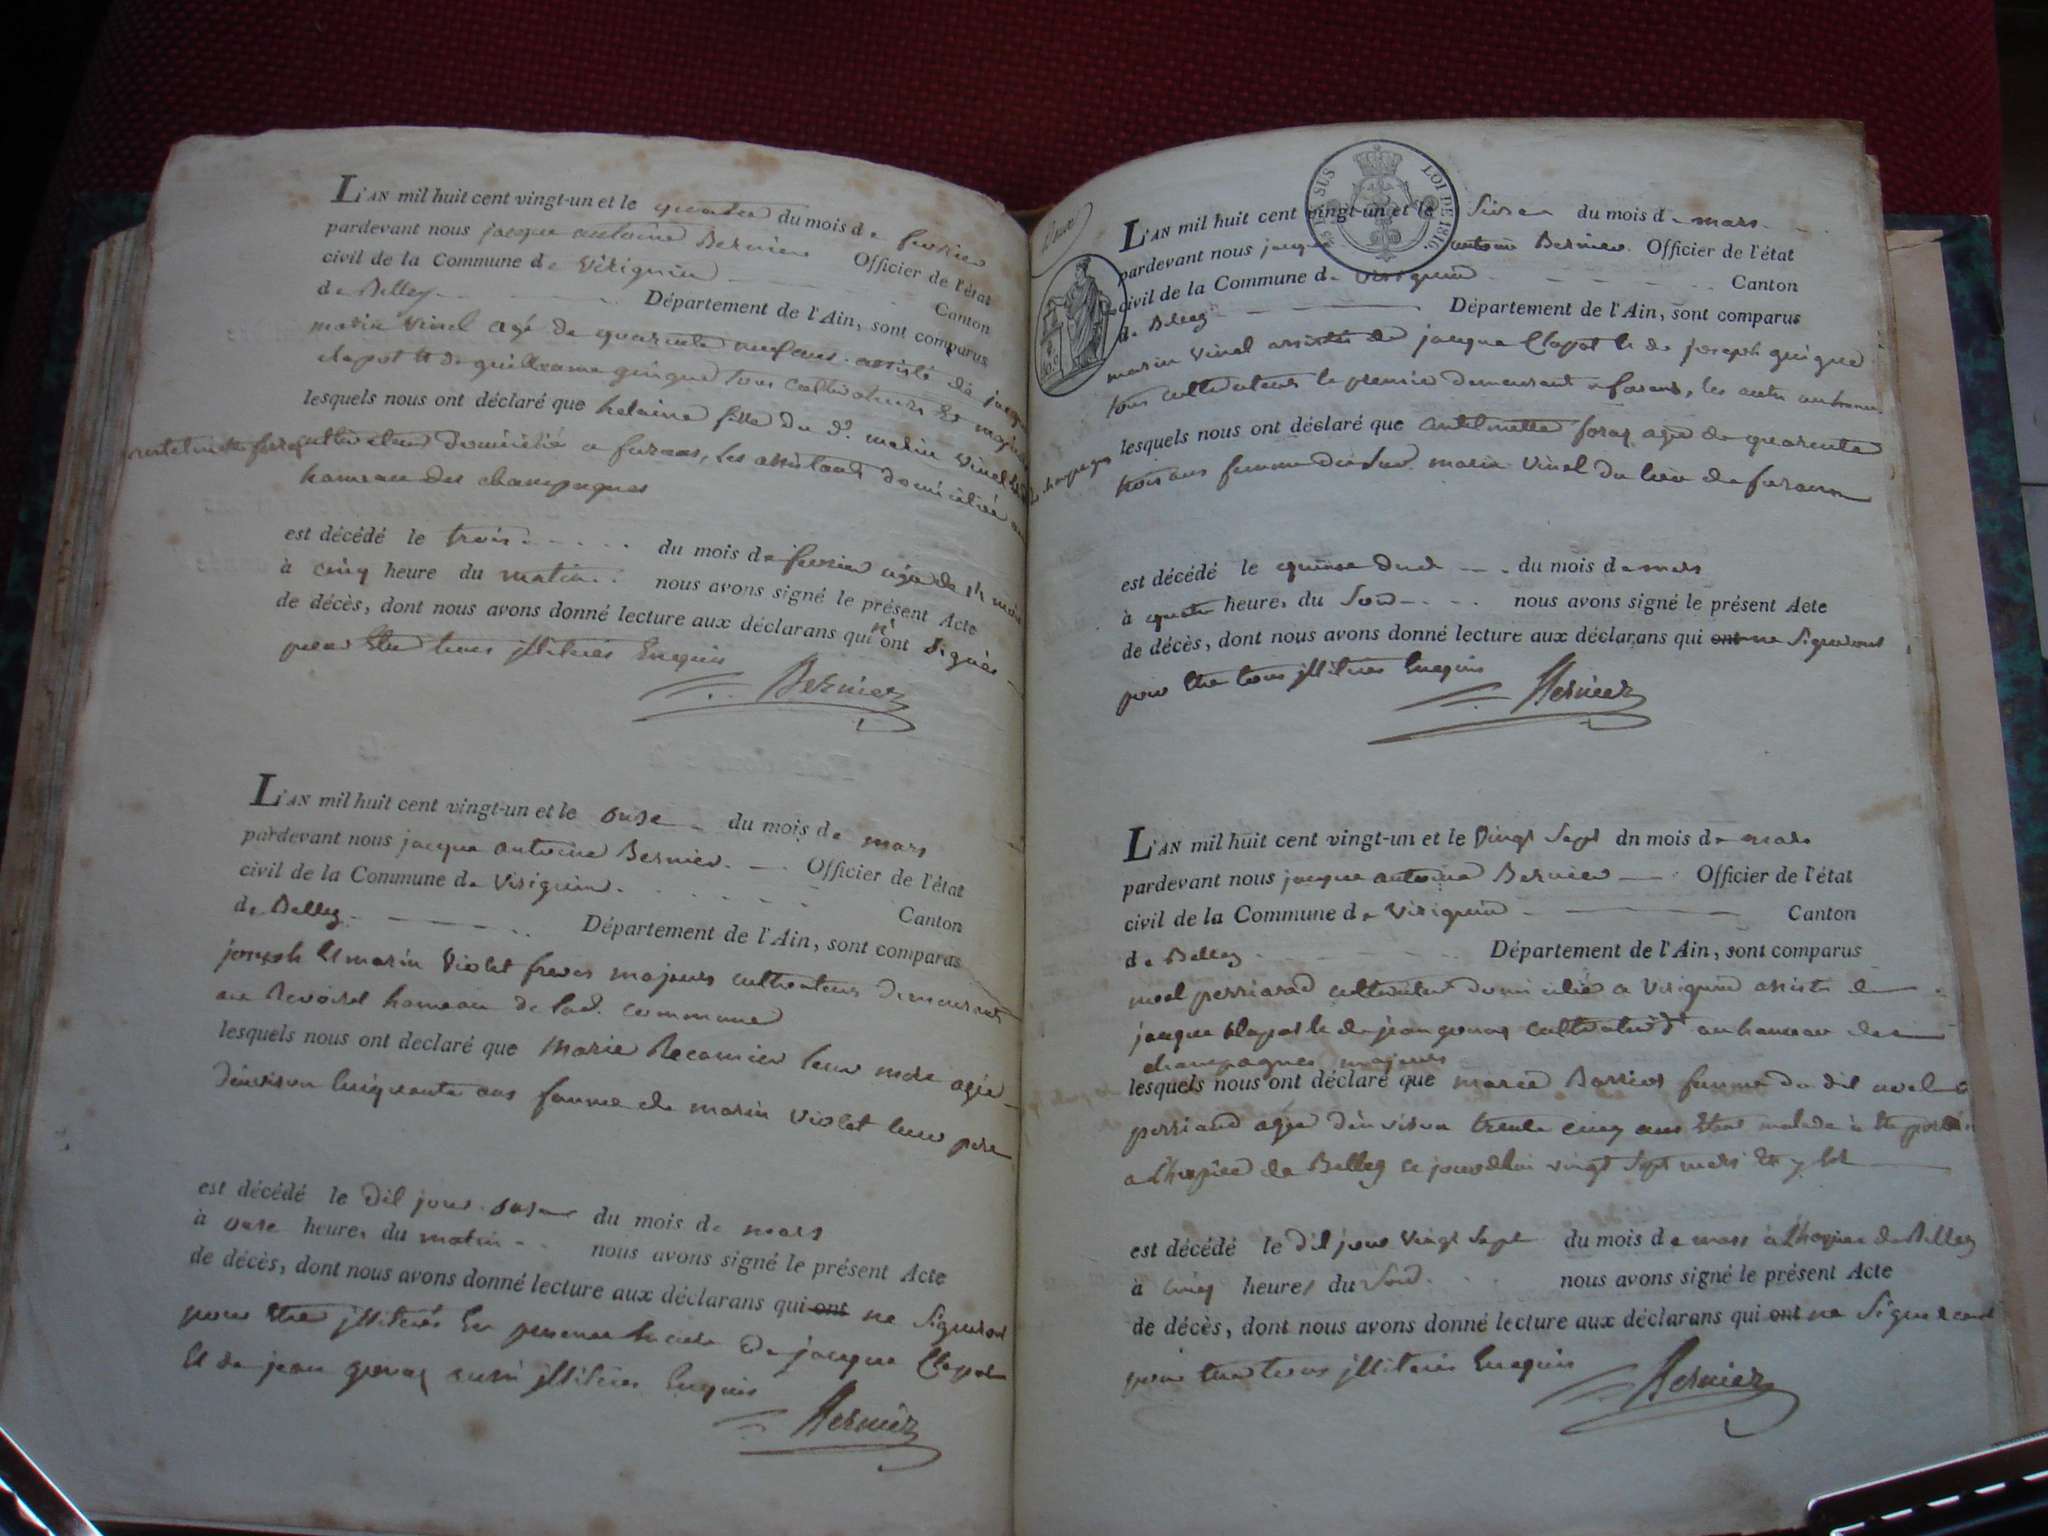 L'AN mil huit cent vingt-un et le quatre du mois de fevrier
pardevant nous jacque antoine Bernier Officier de l'état
civil de la Commune de Virignin Canton
de Belley Département de l'Ain, sont comparus
marin Vinel agé de quarante neuf ans assisté de jacque
clapot et de guillaume guigue tous cultivateurs et majeurs
lesquels nous ont déclaré que helaine fille du d. marin Vinel
cultivateur domicilié a furans, les assistants domiciliés au
hameau des champagnes
est décédé le trois du mois de fevrier agée de mois
à cinq heure du matin nous avons signé le présent Acte
de décès, dont nous avons donné lecture aux déclarans qui n'ont signés
pour Etre tous illiterés Enquis
Bernier
L'AN mil huit cent vingt-un et le onse du mois de mars
pardevant nous jacque antoine Bernier Officier de l'état
civil de la Commune de Virignin
Canton
de Belley Département de l'Ain, sont comparus
joseph et marin Violet freres majeurs cultivateurs demeurant
au Revoiret hameau de lad. commune
lesquels nous ont declaré que Marie Recamier leur mere agée
denviron cinquante ans famme de marin Violet leur pere
est décédé le dit jour onse du mois de mars
à onse heures du matin nous avons signé le présent Acte
de décès, dont nous avons donné lecture aux déclarans qui ont ne Signeront
pour Etre illiterés En presence de jacque Clapot
Et de jean gonas aussi illiteres Enquis
Bernier
DE 1816.
L'AN mil huit cent vingt-un et le Seize du mois de mars
pardevant nous jacque antoine Bernier Officier de l'état
civil de la Commune de Virignin Canton
de Belley Département de l'Ain, sont comparus
marin Vinel assisté de jacque Clapot et de joseph guigue
tous cultivateurs le premier demeurant a furans, les autres au hameau
champagnes
lesquels nous ont déclaré que antelmette foraz agée de quarante
trois ans femme dudit marin Vinel du lieu de furans
est décédé le quinse dud du mois de mars
à quatre heures du Soir nous avons signé le présent Acte
de décès, dont nous avons donné lecture aux déclarans qui ont ne Signeront
pour Etre tous illiteres Enquis
Bernier
L'AN mil huit cent vingt-un et le vingt Sept du mois de mars
pardevant nous jacque antoine Bernier Officier de l'état
civil de la Commune de Virignin Canton
de Belley Département de l'Ain, sont comparus
noel perriand cultivateur domicilié a Virignin assisté de
jacque Clapot et de jean gonas cultivateurs au hameau des
champagnes majeurs
lesquels nous ont déclaré que marie femme du dit noel
perriand agée denviron trente cinq ans Etant malade
a lhospice de Belley ce jourdhui vingt Sept mars
est décédé le dit jour vingt Sept du mois de mars à lhospice de Belley
à cinq heures du Soir nous avons signé le présent Acte
de décès, dont nous avons donné lecture aux déclarans qui ont ne Signeront
pour Etre tous illiteres Enquis
Bernier